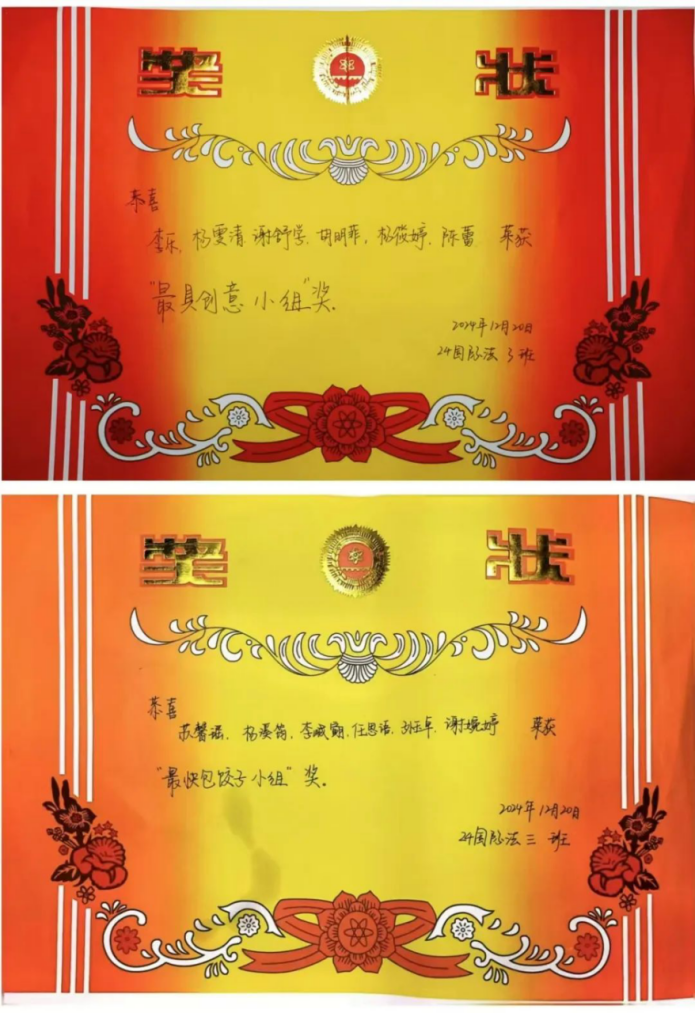 奖 状
恭喜
李乐、杨雯清、谢舒学、胡明菲、杨筱婷、陈蕾 荣获
"最具创意小组"奖.
2024年12月20日
24国际法3班
奖 状
恭喜
苏馨谣、杨溪筠、李威颖、任思语、谢婉婷 荣获
"最快包饺子小组"奖。
2024年12月20日
24国际法三班